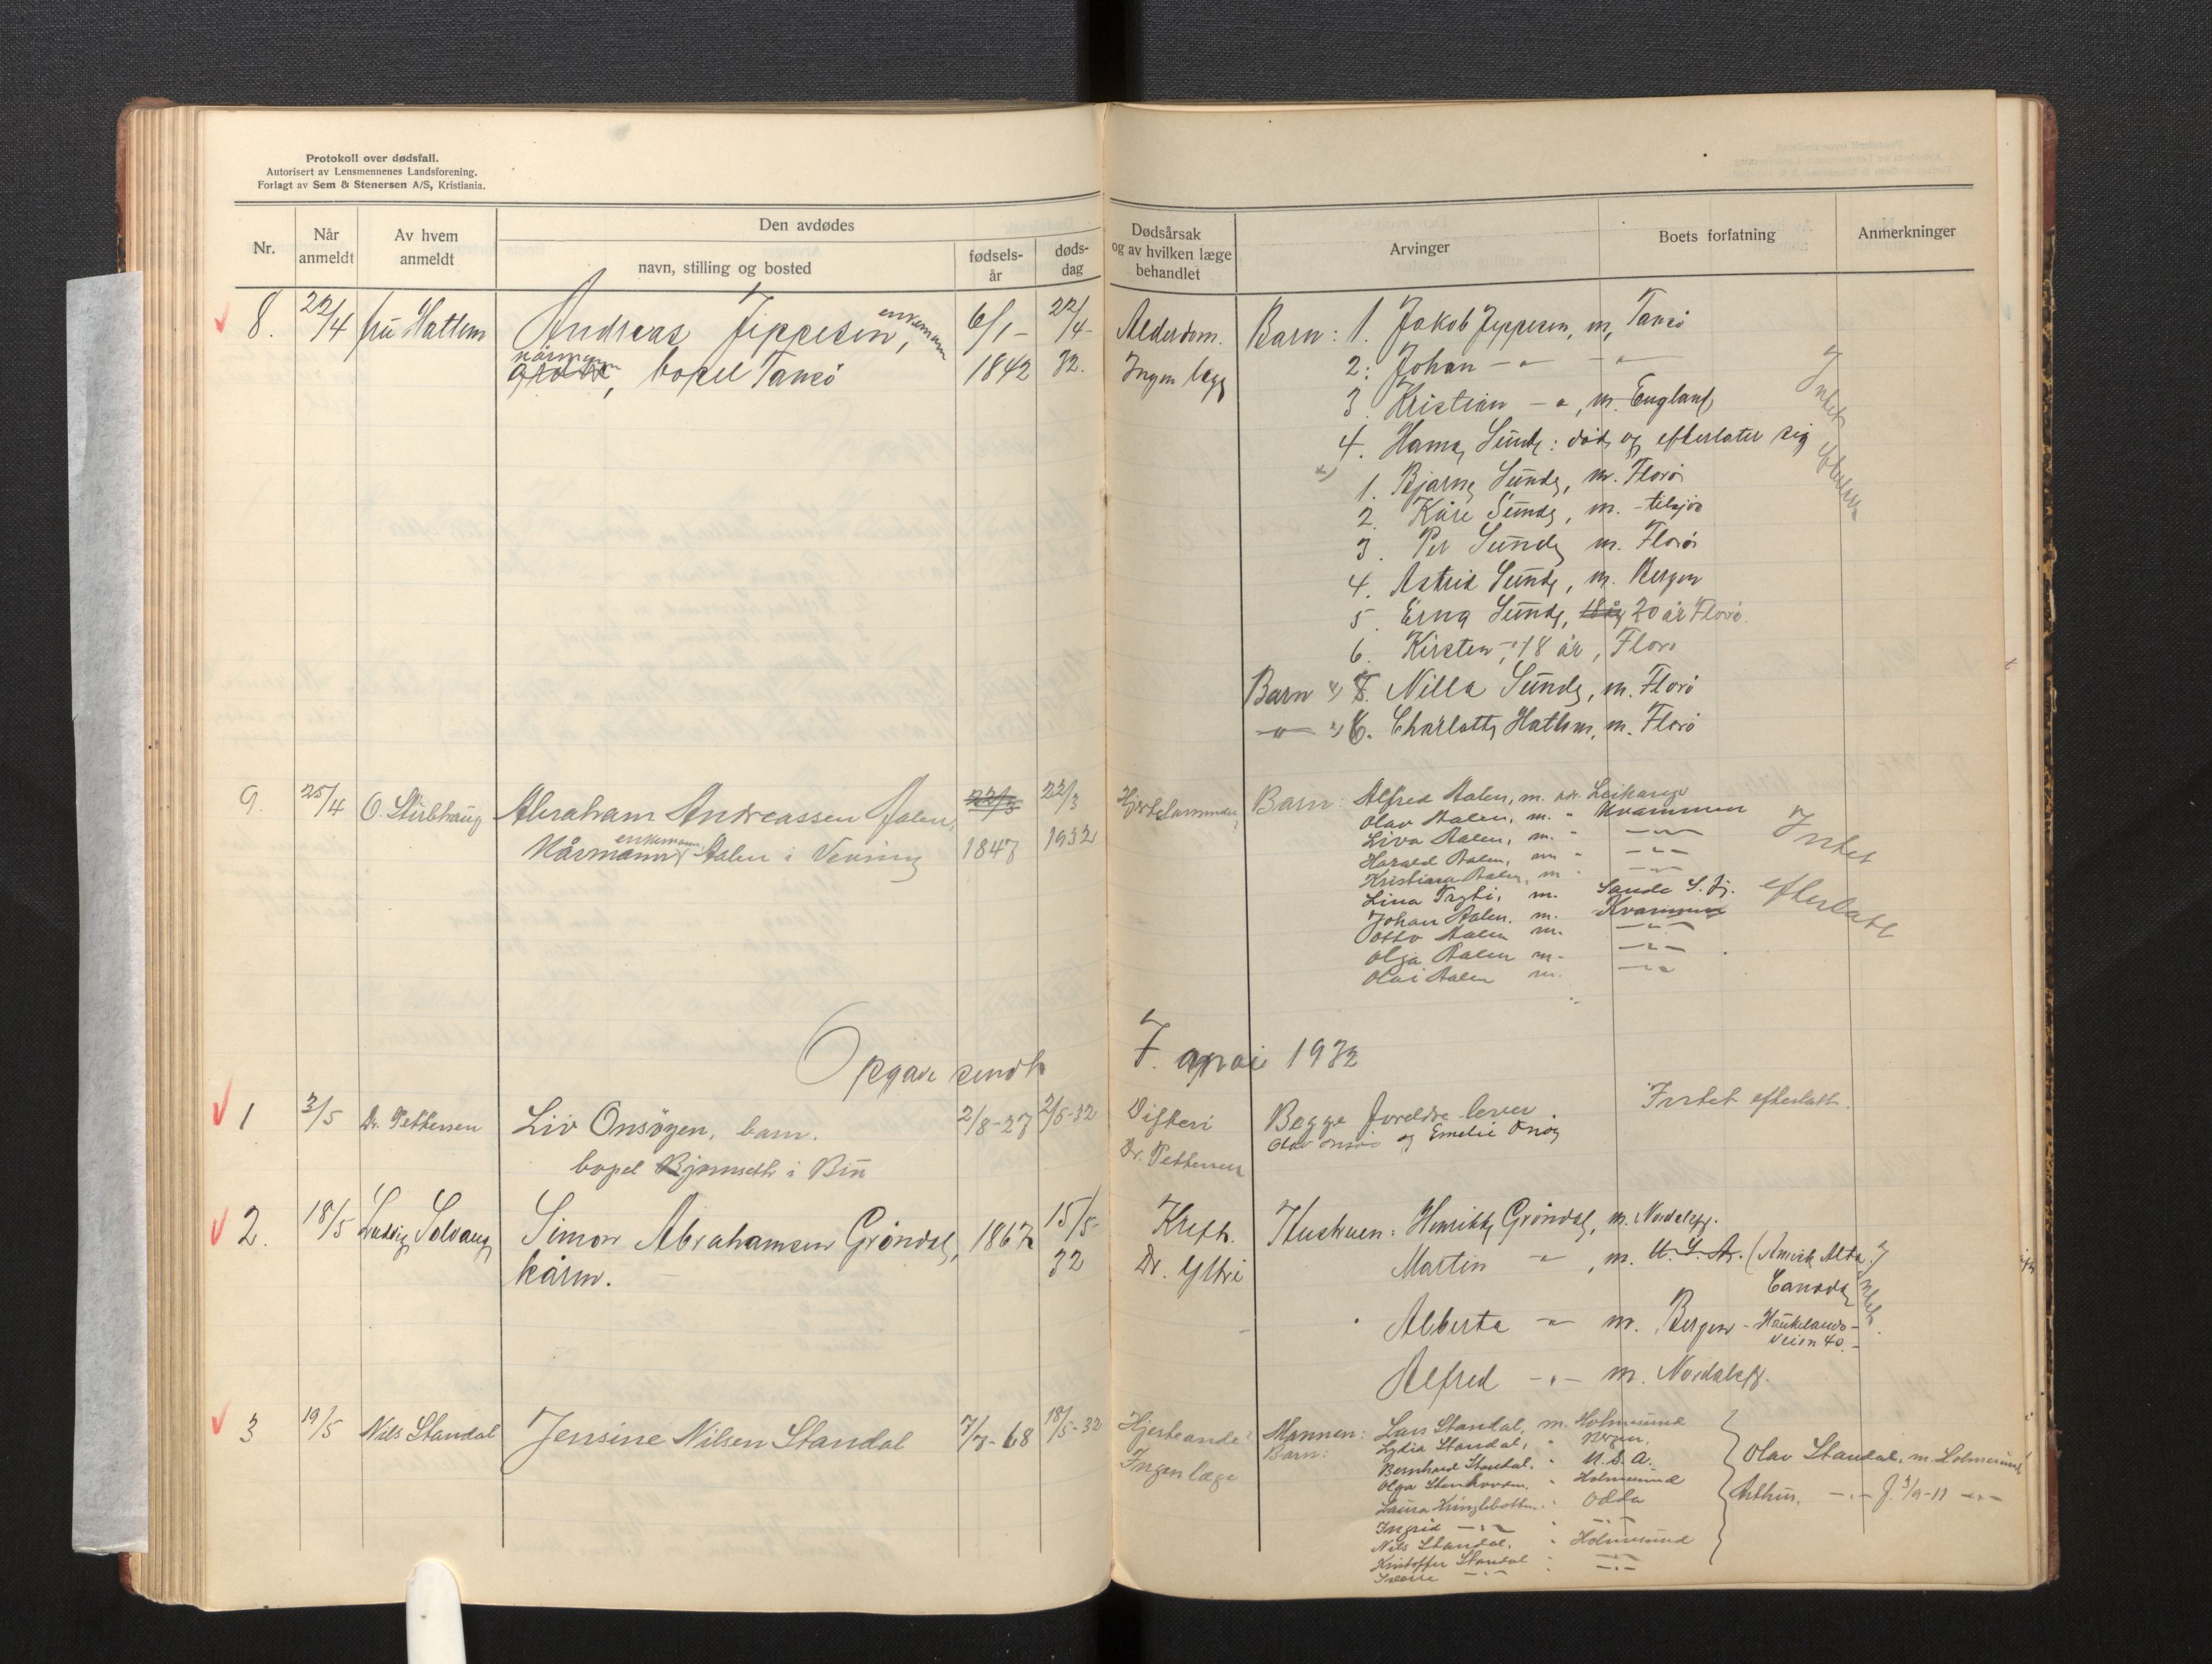 Protokoll over dødsfall.
Autorisert av Lensmennenes Landsforening.
Forlagt av Sem & Stenersen A/S, Kristiania.
Nr.
Når anmeldt
Av hvem anmeldt
Den avdødes
navn, stilling og bosted
fødsels-år
døds-dag
Dødsårsak og av hvilken læge behandlet
Arvinger
Boets forfatning
Anmerkninger
8. 22/4 fru Hatlem Andreas Jeppesen, enkemann 6/1- 22/4- Alderdom. Barn: 1. Jakob Jeppesen, m, Tansø
kårmann, bopel Tansø 1842 32. Ingen læge 2: Johan -"- -"-
3. Kristian -"-, m. England
4. Hama Sunde: død og efterlater sig
1. Bjarne Sunde, m. Florø
2. Kåre Sunde, m. - tilsjøs
3. Per Sunde m. Florø
4. Astrid Sunde, m. Bergen
5. Erna Sunde, 18 år 20 år Florø.
6. Kirsten -"- 18 år, Florø
Barn 5. Nilla Sunde, m. Florø
-"- 6. Charlotte Hatlem, m. Florø
Intet efterlatt
9. 25/4 Abraham Andreassen Aalen, 22/3 22/3 Barn: Alfred Aalen, m. adr. Leikanger
Kårmann enkemann Aalen i Vevring 1847 1932
Olav Aalen, m. " Kvammen
Liva Aalen, m. " -"-
Harald Aalen, m " -"-
Kristiana Aalen, m " -"-
Lina m. Sande S. fj.
Johan Aalen. m. Kvammen
Otto Aalen m. -"-
Olga Aalen m. -"-
Olai Aalen m. -"-
Intet efterlatt
Opgave sendt 7. mai 1932
1 3/5 Dr. Pettersen Liv Onsøyen, barn. 2/8-27 2/5-32 Difteri Begge foreldre lever. Intet efterlatt.
bopel i Bru Dr. Pettersen Olav Onsøi og Emelie Onsøy
2. 18/5 Ludvig Solvang Simon Abrahamsen Grøndal, 1867 15/5- Kreft. Hustruen: Henrikke Grøndal, m. Nordalsfj.
kårm. 32 Dr. Ytre Martin -"-, m. U.S.A. (Amisk Alta.
Canada
Alberta -"- m. Bergen - Haukelands-
veien 40.-
Alfred -"- m. Nordalsfj.
Intet
3 19/5 Nils Standal Jensine Nilsen Standal 7/7-68 18/5-32 Hjerteonde? Mannen: Lars Standal, m. Holmesund
Ingen læge Barn: Lydia Standal, " Bergen.
Bernhard Standal. " U.S.A.
Olga " Holmesund
Laura Kringlebotten. " Odda
Ingrid -"- " -"-
Nils Standal. " Holmesund
Kristoffer Standal " -"-
Sverre -"- " -"-
Olav Standal, m. Holmesund
Arthur. -"- f. 3/9-11 -"-